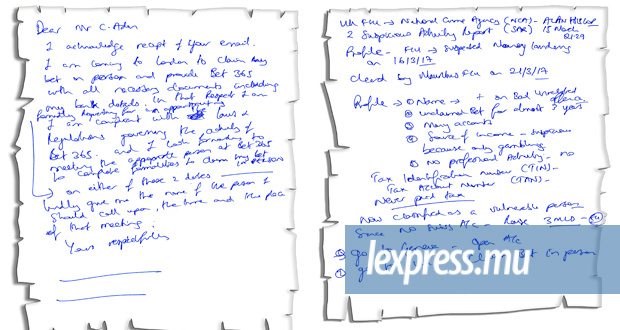 Dear Mr C. Adam
I acknowledge receipt of your email.
I am coming to London to claim my
bet in person and provide Bet 365
with all necessary documents including
my bank details. In that respect I am
formally requesting for an appointment
I am compliant with laws &
regulations governing the activity of
Bet 365. and I look forward to
meeting the appropriate person at Bet 365
to complete formalities to claim my bet
in person
on either of those 2 dates
kindly give me the name of the person I
should call upon, the time and the place
of that meeting.
Yours respectfully
UK FIU → National Crime Agency (NCA) -
2 Suspicious Activity Report (SAR) 15 March
Profile - FIU → Suspected Money laundering
on 16/3/17
Cleared by Mauritius FIU on 21/3/17
Profile → ① Name → + on
② unclaimed Bet for almost 2 years
③ Many accounts
④ Source of income - suspicious
because only gambling
⑤ No professional Activity - no
Tax Identification number (TIN) -
Tax Account Number (TAN) -
Never paid tax
Now classified as a vulnerable person
Since No A/c - Raise 3
Geneva - open A/c
Bet in person
lexpress.mu